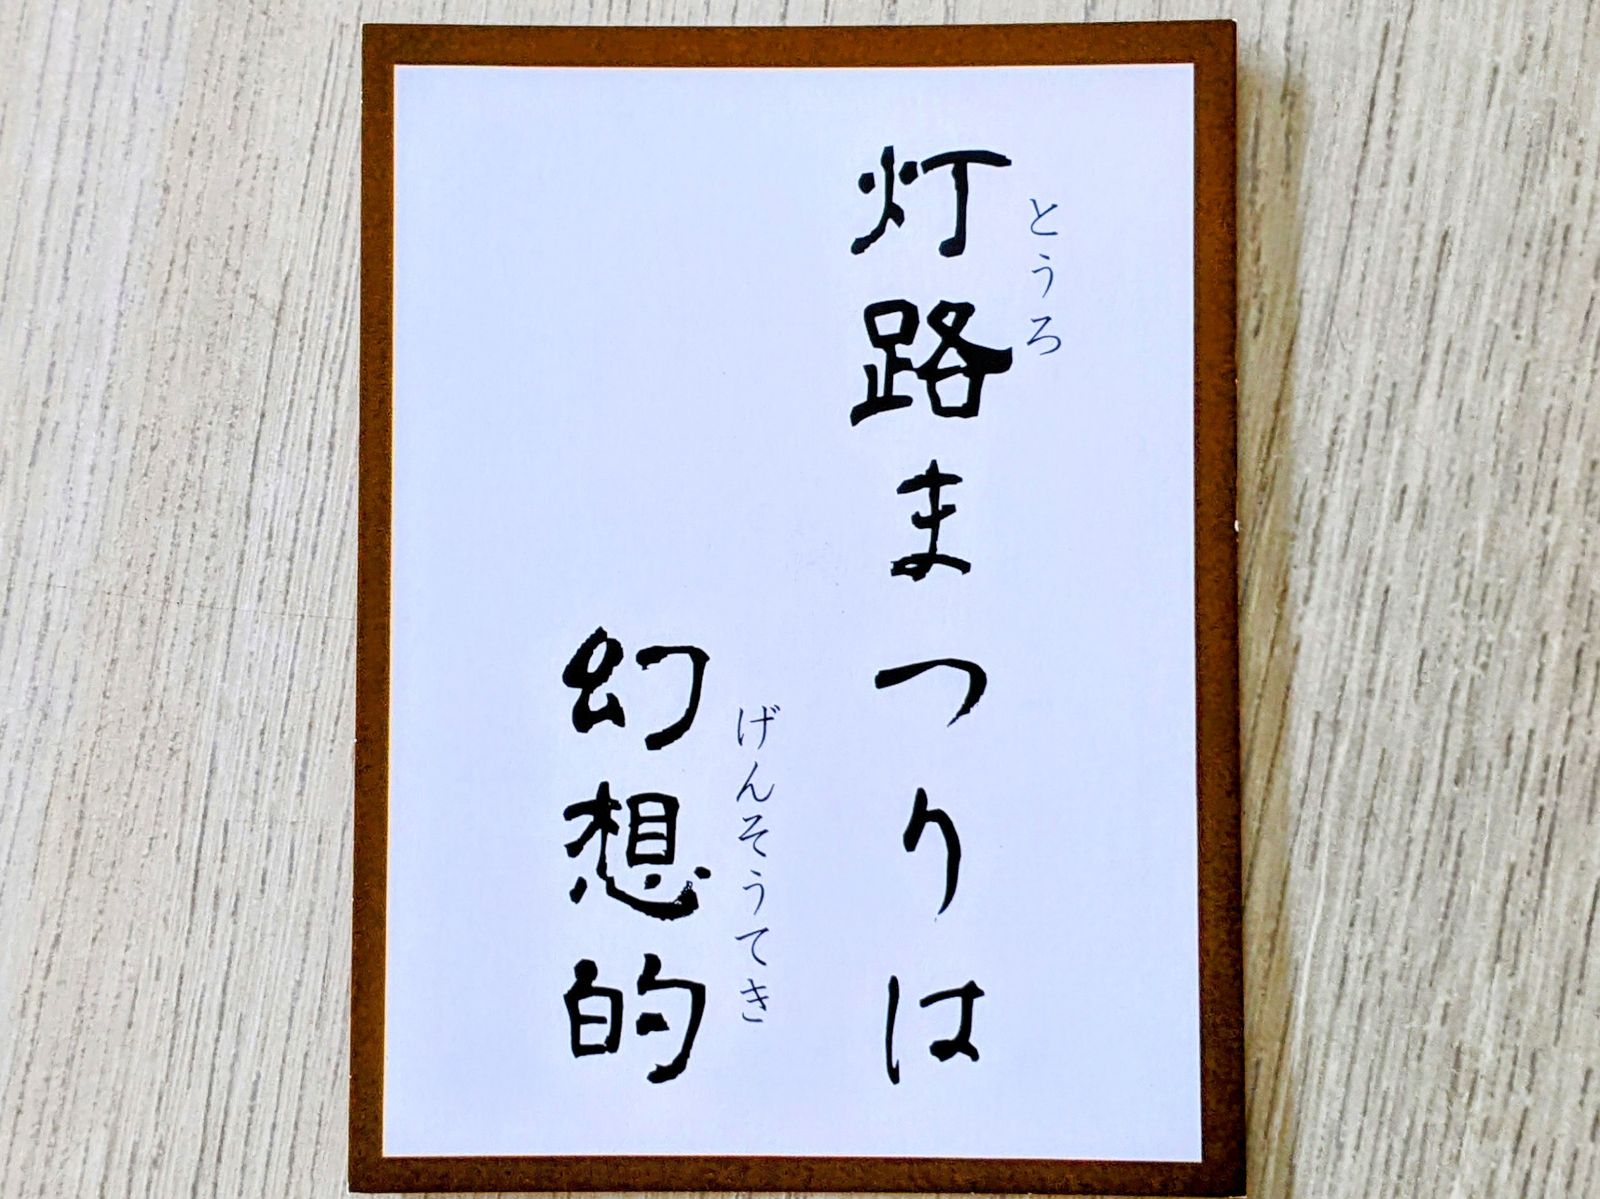 とうろ
灯路まつりは
げんそうてき
幻想的